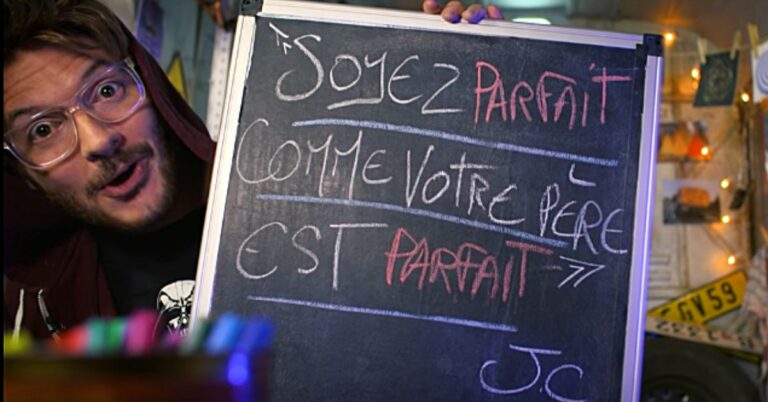 « SOYEZ PARFAIT
COMME VOTRE PÈRE
EST PARFAIT »
J.C
GV59